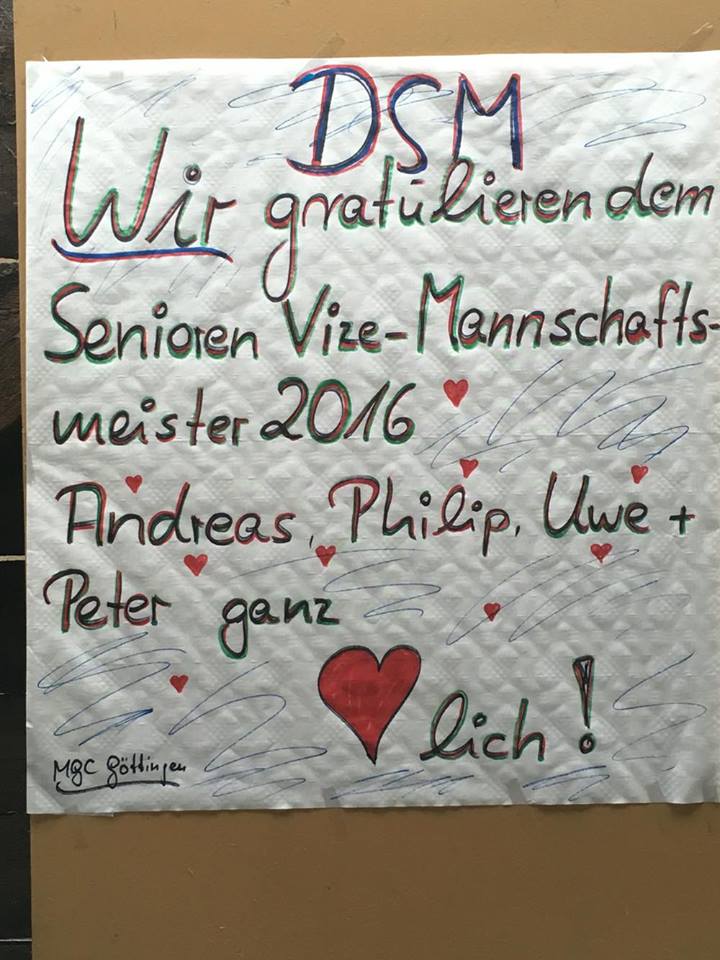 DSM
Wir gratulieren dem
Senioren Vize-Mannschafts-
meister 2016
Andreas, Philip, Uwe +
Peter ganz
lich!
MGC Göttingen